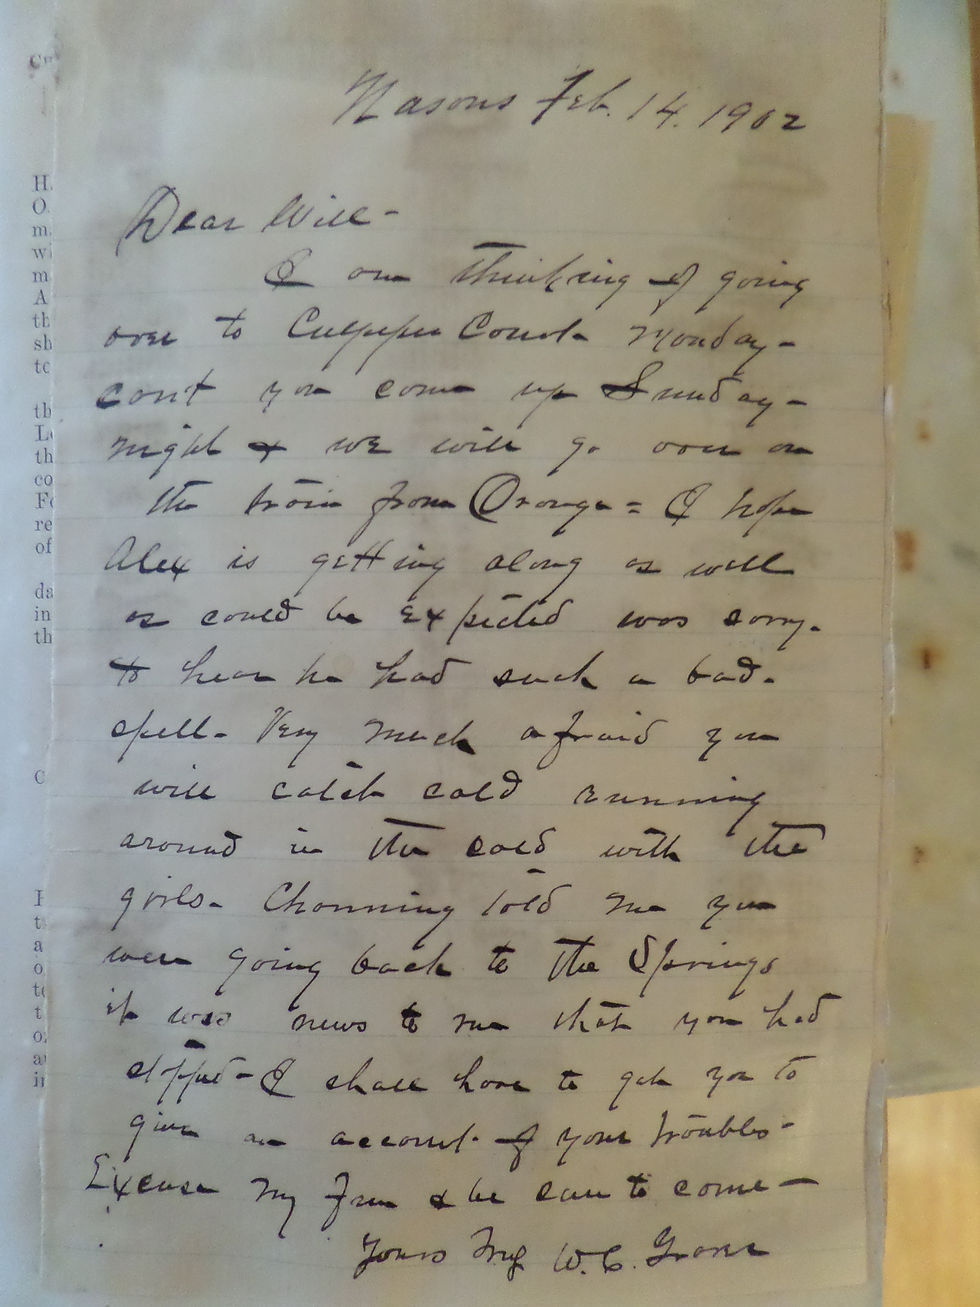 Nasons Feb. 14. 1902
Dear Will-
I am thinking of going
over to Culpeper Court Monday-
can't you come up Sunday-
night & we will go over on
the train from Orange = I hope
Alex is getting along as well
as could be expected was sorry.
to hear he had such a bad.
spell- Very much afraid you
will catch cold running
around in the cold with the
girls- Channing told me you
were going back to the Springs
it was news to me that you had
stopped- I shall have to get you to
give an account of your troubles-
Excuse my & be sure to come-
Yours Truly W. C.
H.
O
m
wi
m
A
th
sh
to
th
Le
th
co
Fo
re
of
da
in
th